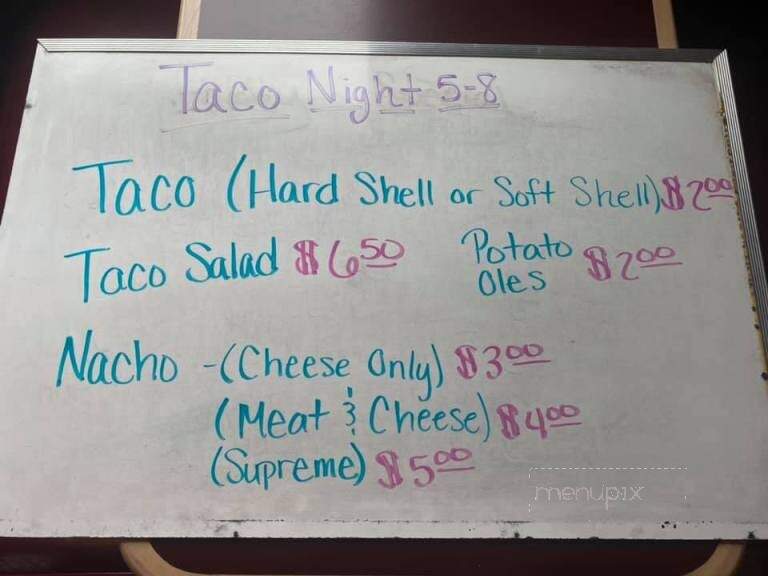 Taco Night 5-8
Taco (Hard Shell or Soft Shell) $2.00
Taco Salad $6.50 Potato Oles $2.00
Nacho - (Cheese Only) $3.00
(Meat & Cheese) $4.00
(Supreme) $5.00
menupix